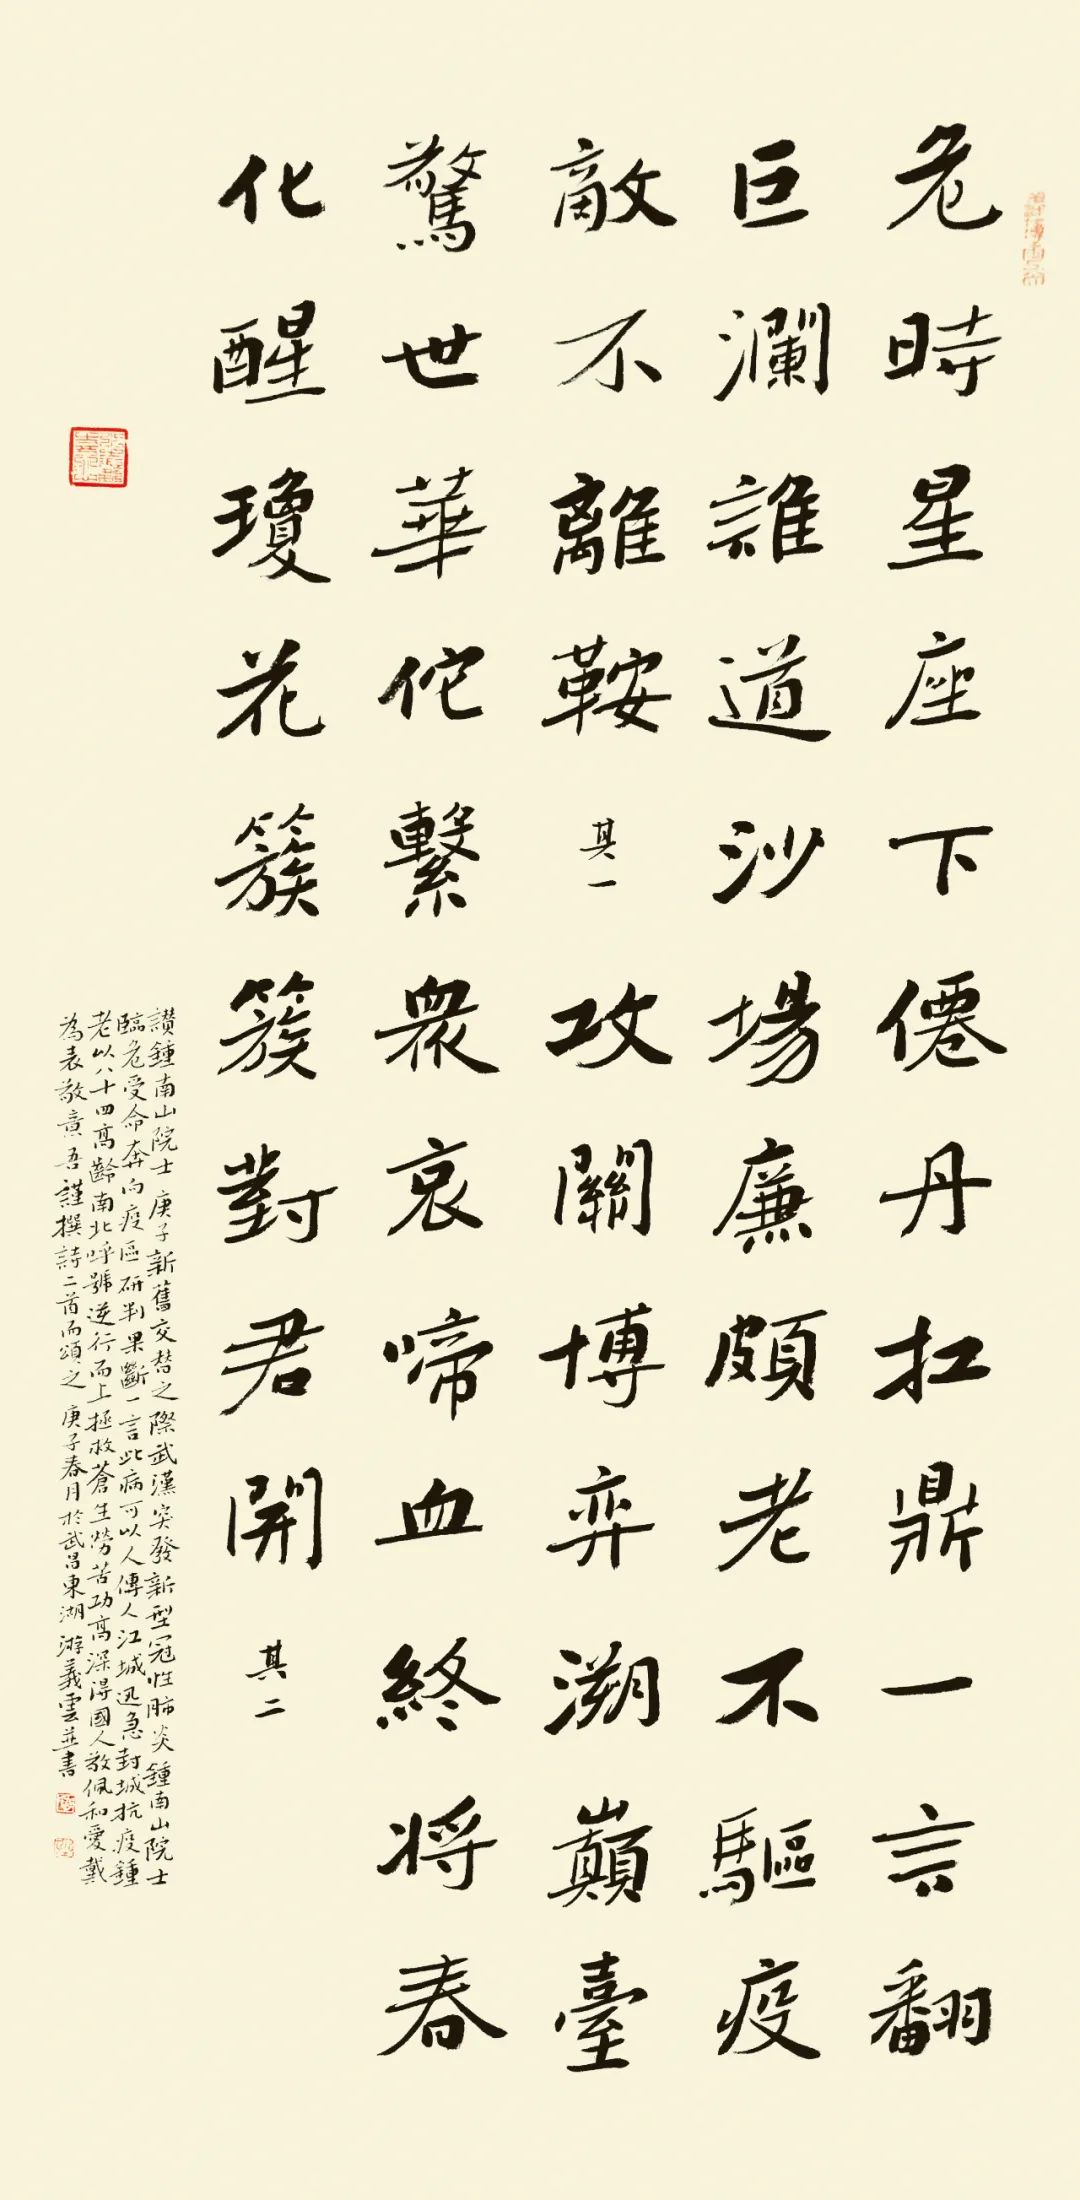 危時星座下僊丹扛鼎一言翻
巨瀾誰道沙場廉頗老不驅疫
敵不離鞍 其一 攻關博弈溯巔臺
驚世華佗繫衆哀啼血終將春
化醒瓊花簇簇對君開 其二
讃鍾南山院士 庚子新舊交替之際武漢突發新型冠性肺炎鍾南山院士
臨危受命奔向疫區研判果斷一言此病可以人傳人江城迅急封城抗疫鍾
老以八十四高齡南北呼號逆行而上拯救蒼生勞苦功高深得國人敬佩和愛戴
為表敬意吾謹撰詩二首而頌之 庚子春月於武昌東湖游義雲並書